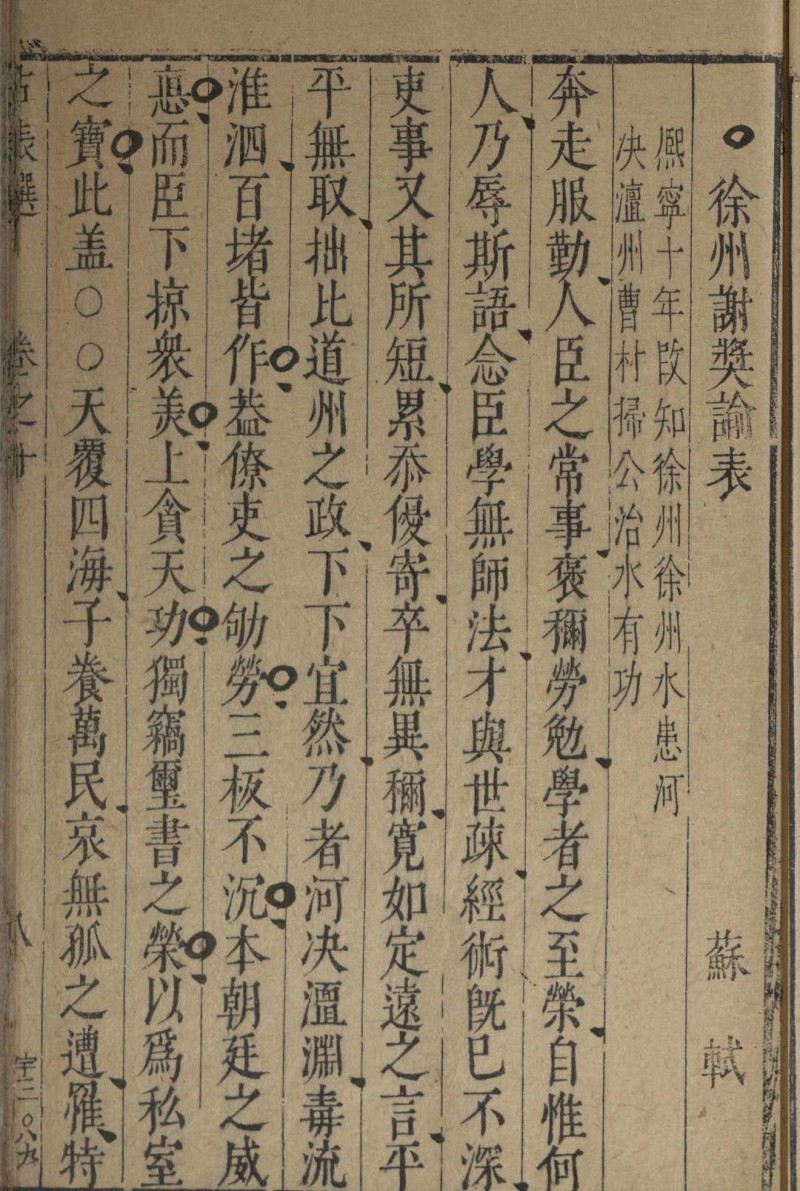 徐州謝奬諭表
蘇軾
熈寧十年改知徐州徐州水患河
决澶州曹村掃公治水有功
奔走服勤人臣之常事褒穪勞勉學者之至榮自惟何
人乃辱斯語念臣學無師法才與世疎經術旣已不深
吏事又其所短累忝優寄卒無異穪寛如定遠之言平
平無取拙比道州之政下下宜然乃者河决澶淵毒流
淮泗百堵皆作葢僚吏之劬勞三板不沉本朝廷之威
惪而臣下掠衆美上貪天功獨竊璽書之榮以爲私室
之寶此盖○○天覆四海子養萬民哀無孤之遭罹特
古表選
卷之十
八
字三〇八九